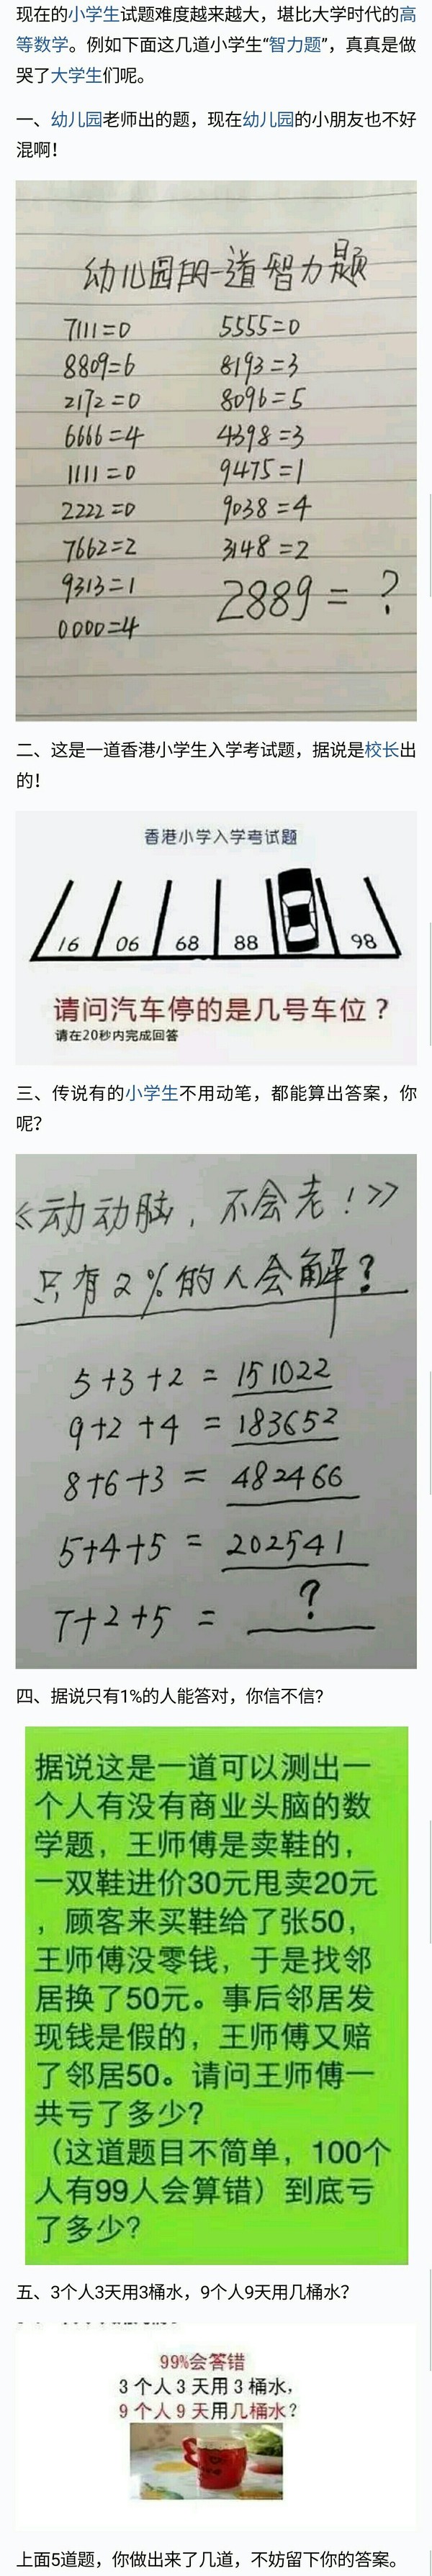 现在的小学生试题难度越来越大，堪比大学时代的高
等数学。例如下面这几道小学生“智力题”，真真是做
哭了大学生们呢。
一、幼儿园老师出的题，现在幼儿园的小朋友也不好
混啊！
幼儿园的一道智力题
7111=0
8809=6
2172=0
6666=4
1111=0
2222=0
7662=2
9313=1
0000=4
5555=0
8193=3
8096=5
4398=3
9475=1
9038=4
3148=2
2889=？
二、这是一道香港小学生入学考试题，据说是校长出
的！
香港小学入学考试题
16 06 68 88 98
请问汽车停的是几号车位？
请在20秒内完成回答
三、传说有的小学生不用动笔，都能算出答案，你
呢？
《动动脑，不会老！》
只有2%的人会解？
5+3+2 = 151022
9+2+4 = 183652
8+6+3 = 482466
5+4+5 = 202541
7+2+5 = ？
四、据说只有1%的人能答对，你信不信？
据说这是一道可以测出一
个人有没有商业头脑的数
学题，王师傅是卖鞋的，
一双鞋进价30元甩卖20元
，顾客来买鞋给了张50，
王师傅没零钱，于是找邻
居换了50元。事后邻居发
现钱是假的，王师傅又赔
了邻居50。请问王师傅一
共亏了多少？
（这道题目不简单，100个
人有99人会算错）到底亏
了多少？
五、3个人3天用3桶水，9个人9天用几桶水？
99%会答错
3 个人 3 天用 3 桶水，
9 个人 9 天用几桶水？
上面5道题，你做出来了几道，不妨留下你的答案。